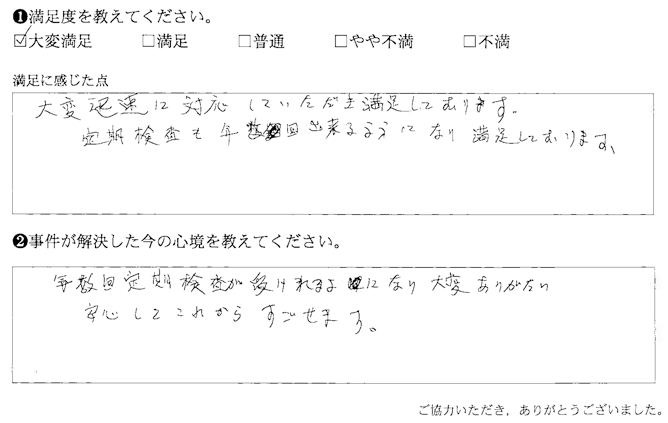 ❶満足度を教えてください。
☑大変満足 □満足 □普通 □やや不満 □不満
満足に感じた点
大変迅速に対応していただき満足しております。
定期検査も年数回出来るようになり満足しております、
❷事件が解決した今の心境を教えてください。
年数回定期検査が受けれるよになり大変ありがたい
安心してこれからすごせます。
ご協力いただき、ありがとうございました。